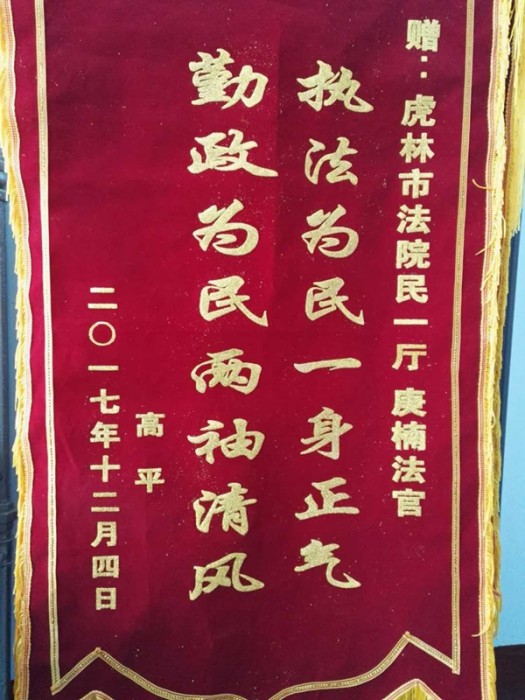 赠：虎林市法院民一厅 庚楠法官
执法为民一身正气
勤政为民两袖清风
高平
二〇一七年十二月四日